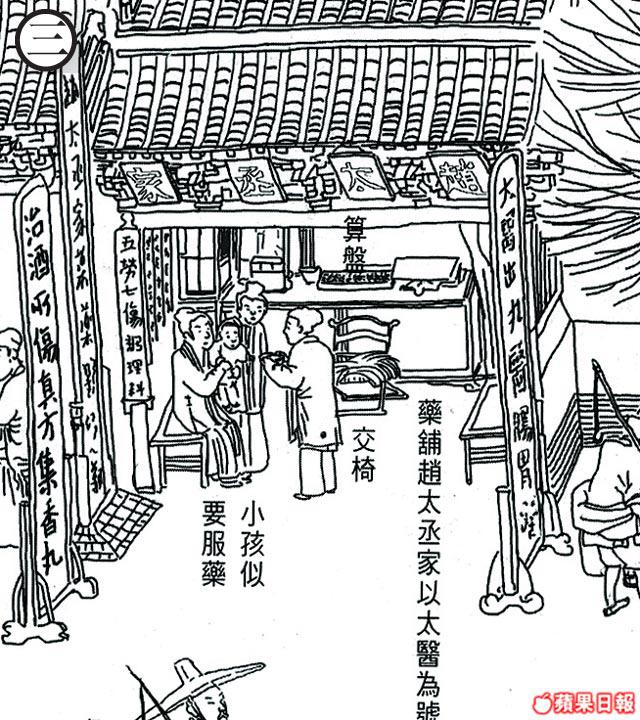 三
趙太丞家
大醫出丸醫腸胃藥
五勞七傷
治酒所傷真方集香丸
算盤
交椅
小孩似
要服藥
藥舖趙太丞家以太醫為號
蘋果日報